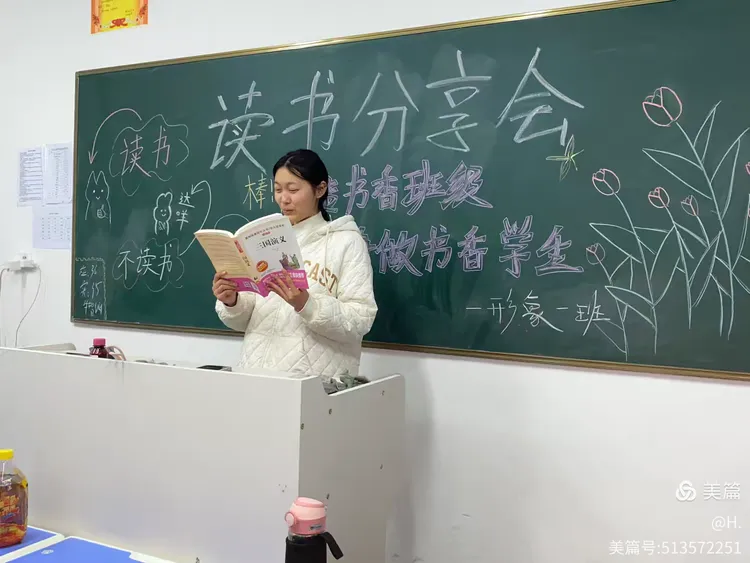 读书分享会
读书
棒
书香班级
达咩
不读书
做书香学生
三国演义
一形象一班
美篇
@H.
美篇号:513572251